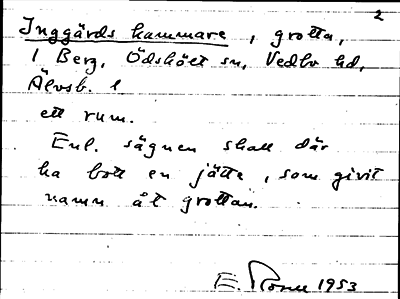 2
Inggärds kammare, grotta,
i Berg, Ödskölt sn, Vedbo hd,
Älvsb. l
ett rum.
Enl. sägnen skall där
ha bott en jätte, som givit
namn åt grottan.
E. 1953